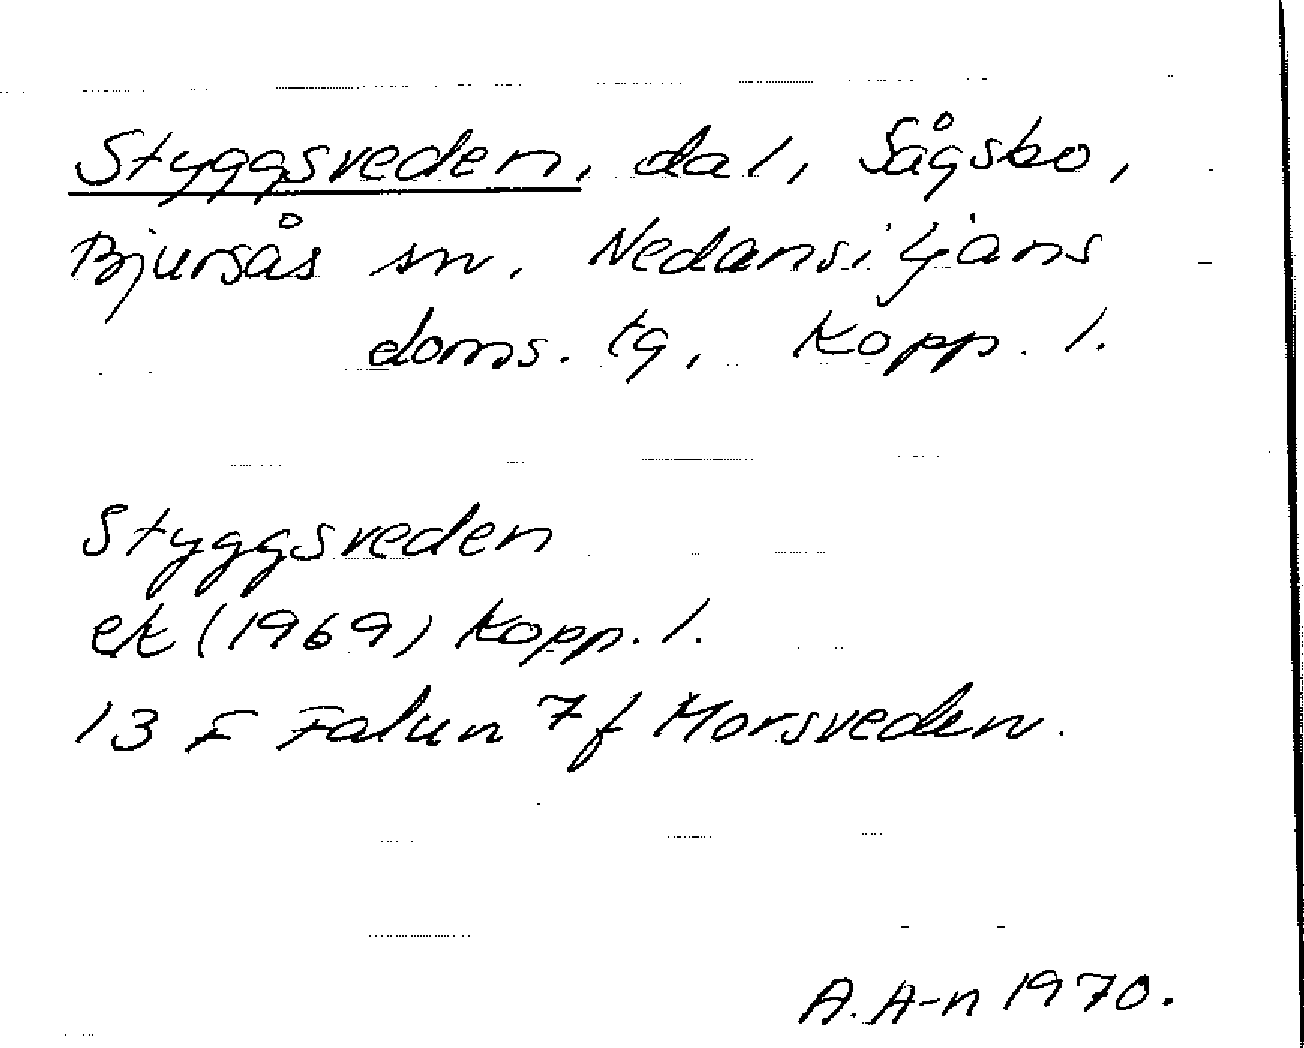 Styggsveden, dal, Sågsbo,
Bjursås sn. Nedansiljans
doms. tg, Kopp. l.
Styggsveden
ek (1969) Kopp. l.
13 F Falun 7 f Morsveden.
A. A-n 1970.